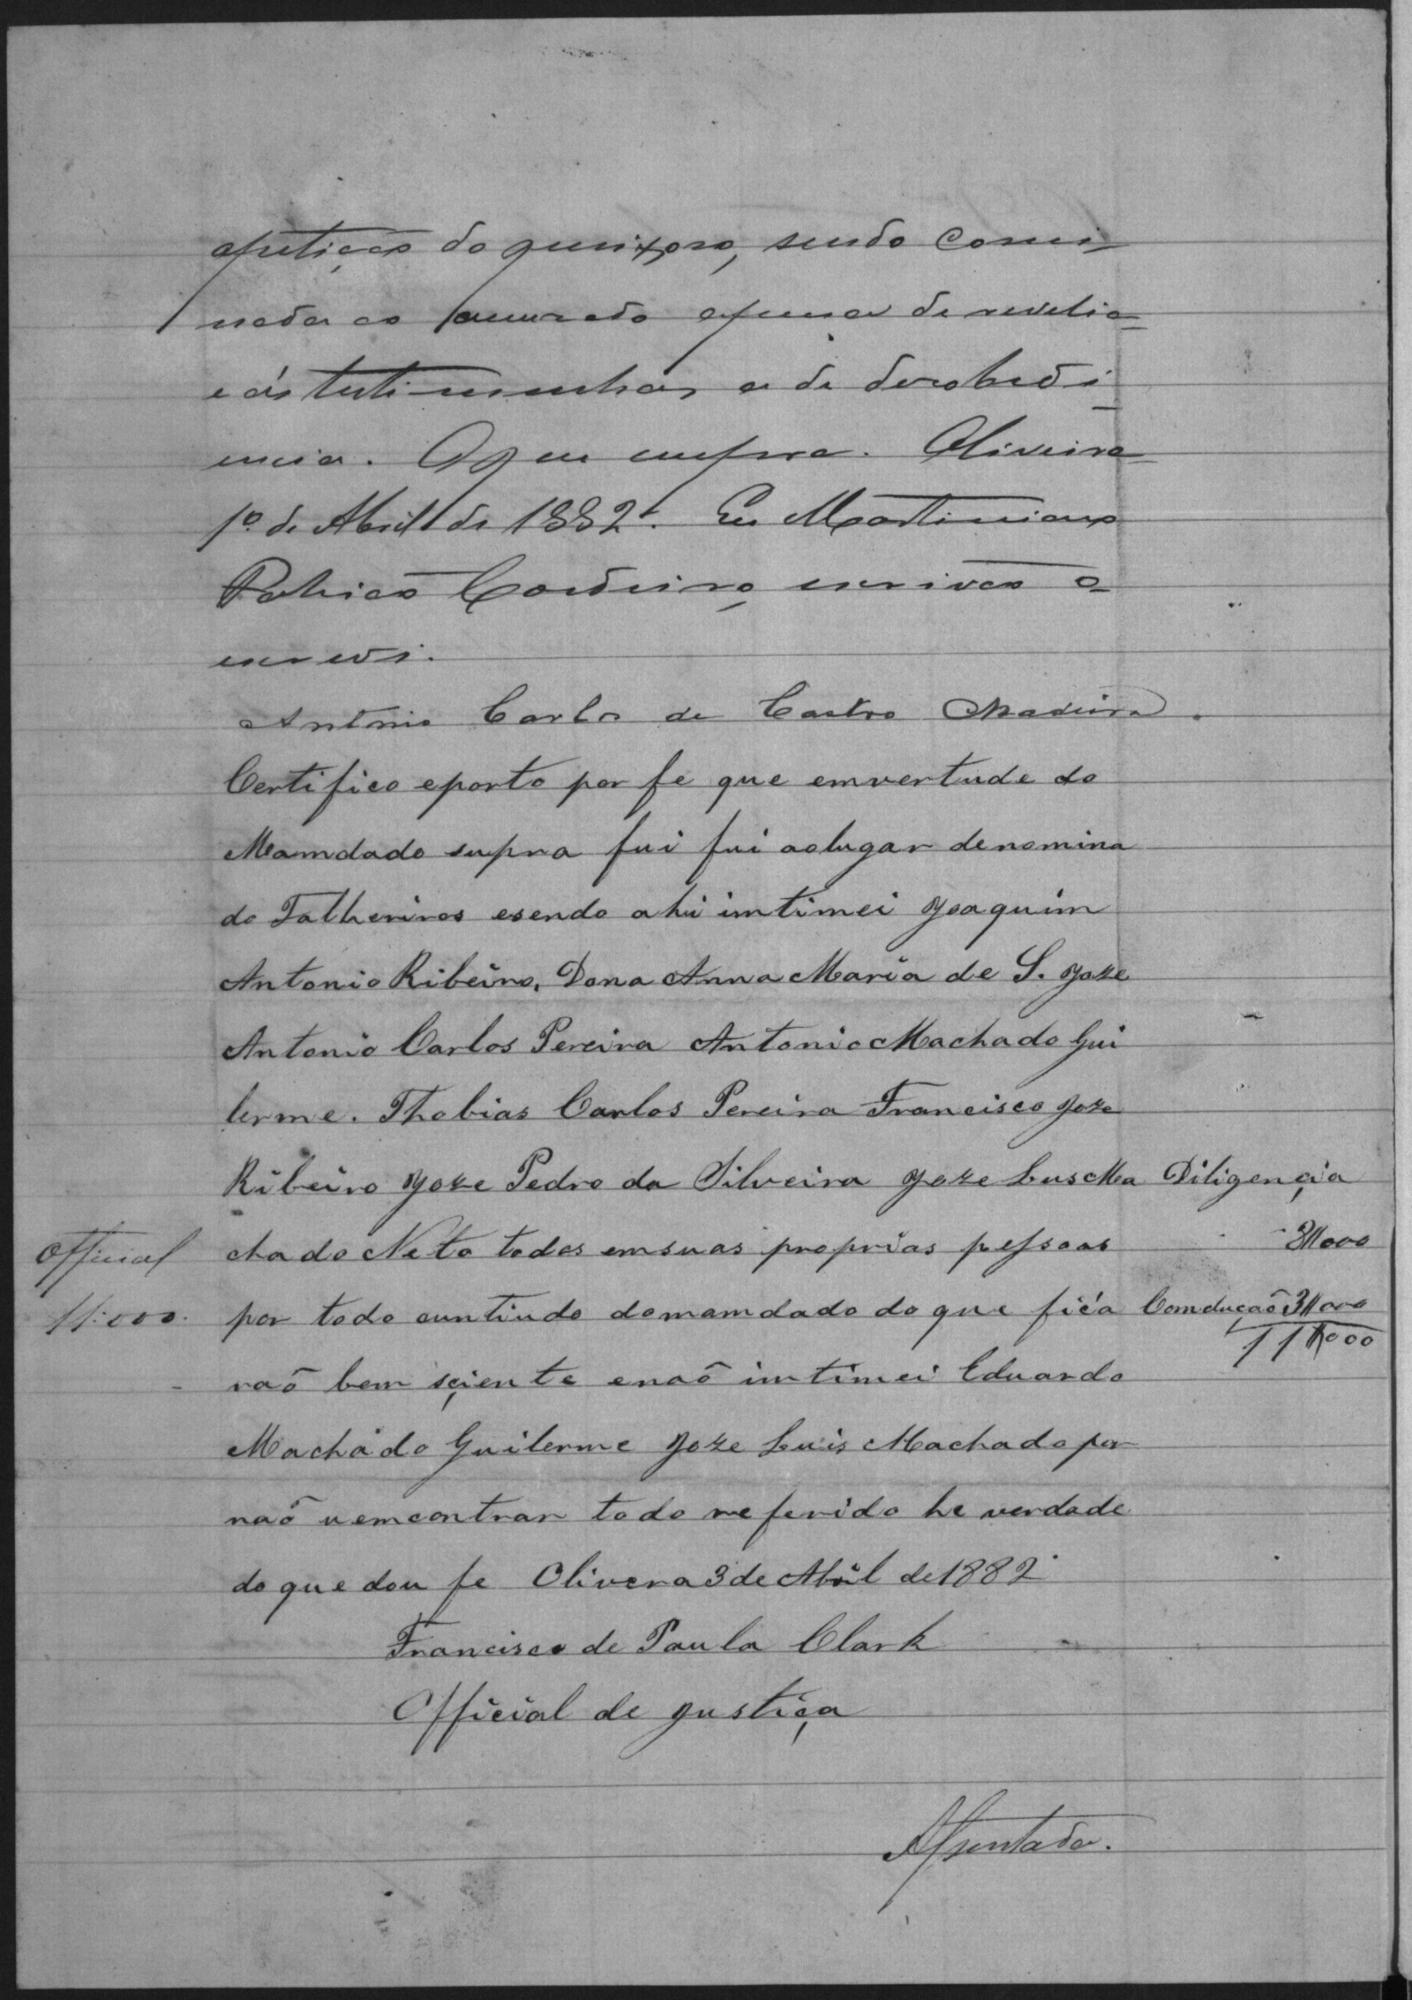 apetição do queixoso, sendo comi
nada ao accusado apena de revelia
e ás testimunhas a de desobedi
encia. O que cumpra. Oliveira
1º de Abril de 1882. Eu Martiniano
Patricio Cordeiro escrivão o
escrevi.
Antonio Carlos de Castro Madeira.
Certifico eporto por fe que emvertude do
Mamdado supra fui fui aolugar denomina
do Talheriros esendo ahi imtimei Joaquim
Antonio Ribeiro, Dona Anna Maria de S. Joze
Antonio Carlos Pereira Antonio Machado Gui
lerme. Thobias Carlos Pereira Francisco Joze
Ribeiro Joze Pedro da Silveira Joze Luis Ma
chado Neto todos emsuas proprias pessoas
por todo cuntiudo domamdado do que ficá
raõ bem sçiente enaõ imtimei Eduardo
Machado Guilerme Joze Luis Machado por
naõ uemcontrar todo referido he verdade
do que dou fe Olivera 3 de Abril de 1882
Francisco de Paula Clark
Official de justiça
Diligençia
3$000
Comduçaõ 3$000
11$000
Official
11:000.
Assentada.